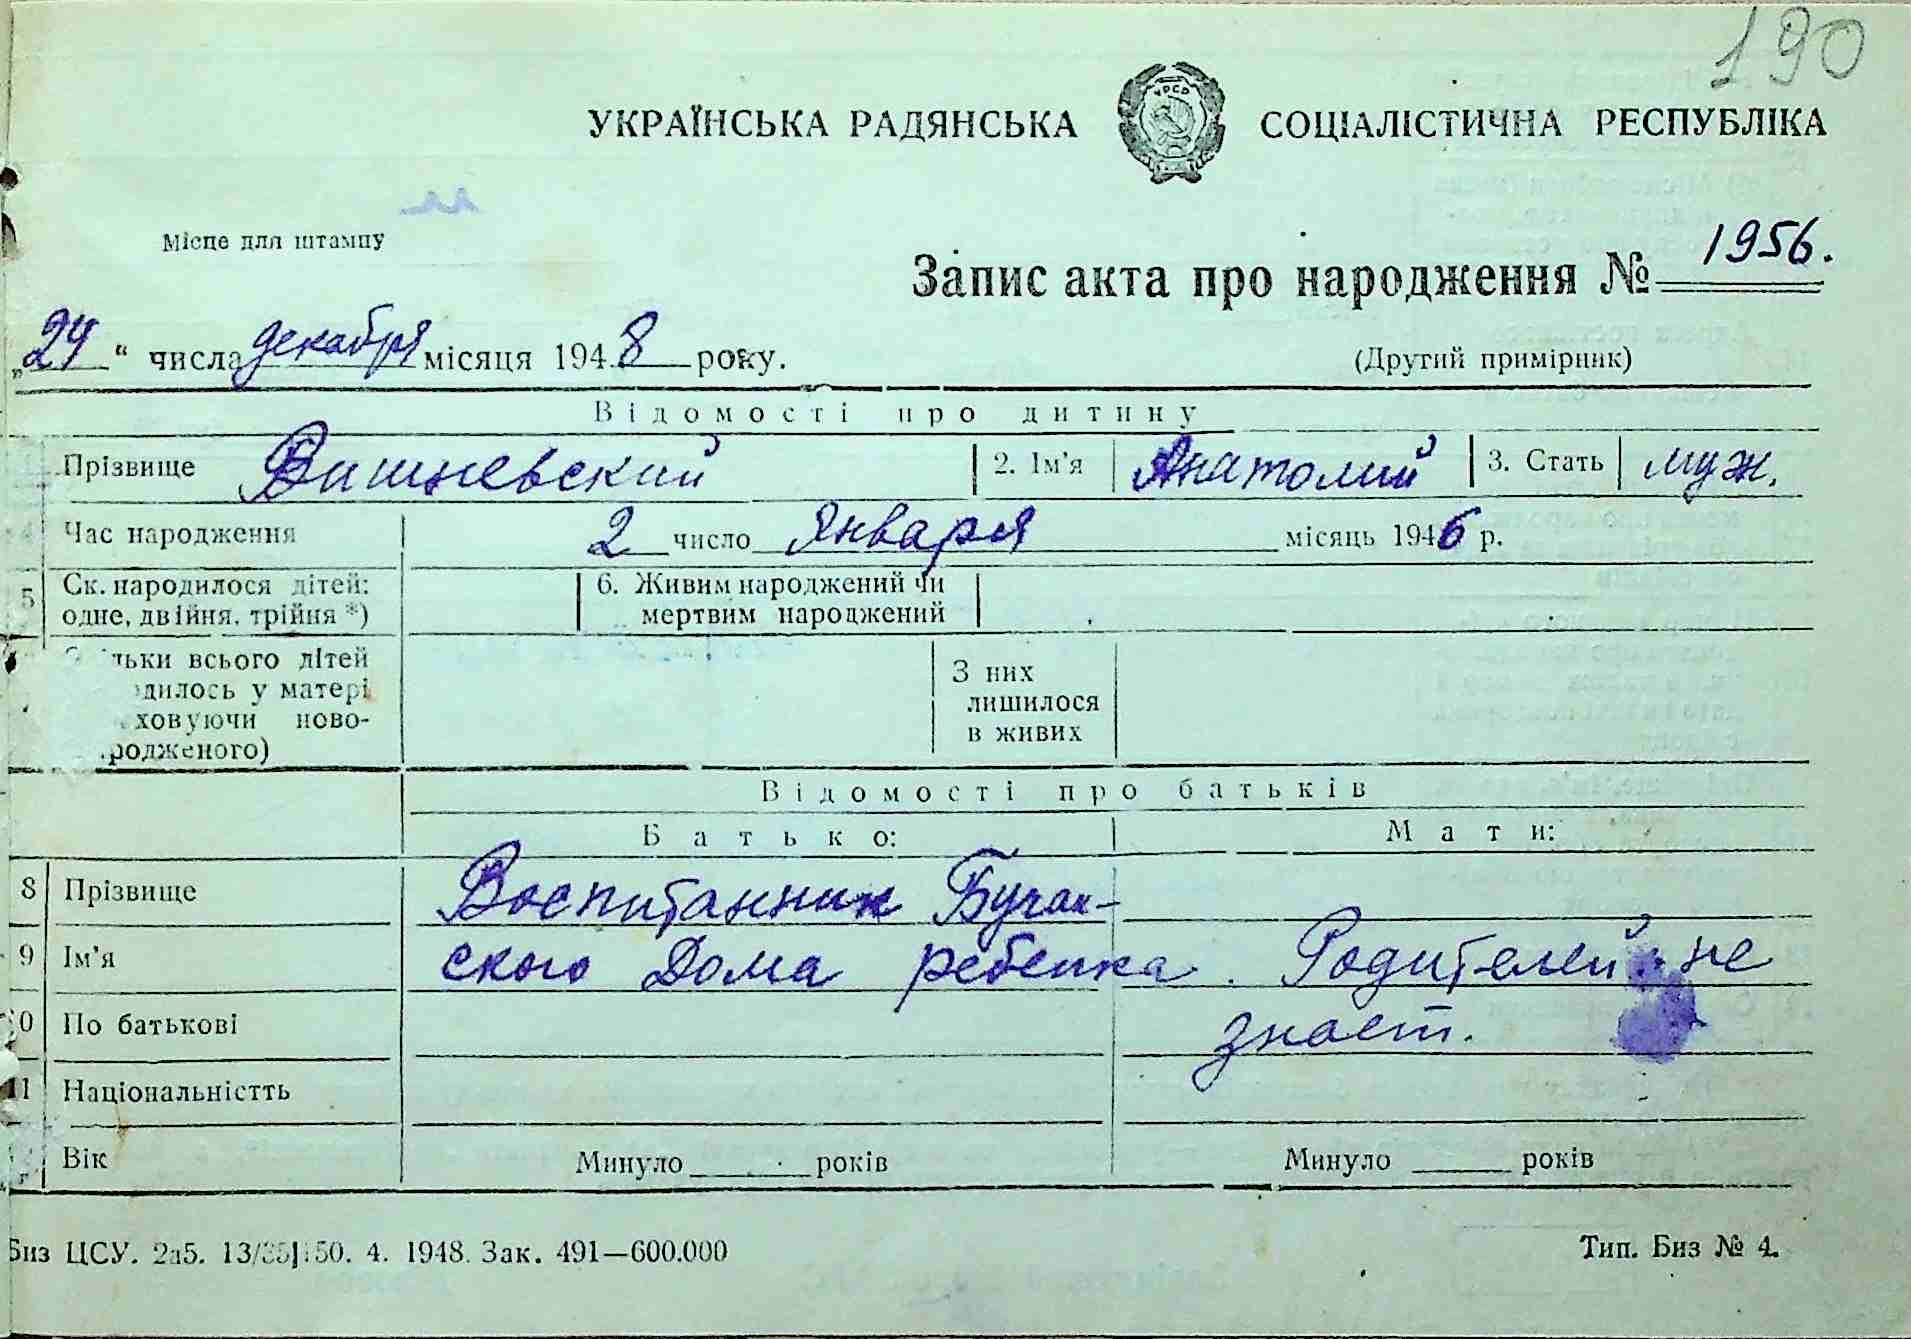 190
УКРАЇНСЬКА РАДЯНСЬКА СОЦІАЛІСТИЧНА РЕСПУБЛІКА
УРСР
Місце для штампу
Запис акта про народження № 1956.
„24“ числа декабря місяця 1948 року.
(Другий примірник)
Відомості про дитину
Прізвище Вишневский 2. Ім'я Анатолий 3. Стать муж.
4 Час народження 2 число Января місяць 1946 р.
5 Ск. народилося дітей: одне, двійня, трійня *) 6. Живим народжений чи мертвим народжений
льки всього дітей
дилось у матері
ховуючи ново-
родженого)
З них лишилося в живих
Відомості про батьків
Батько: Мати:
8 Прізвище Воспитанник Бучан-
9 Ім'я ского Дома ребенка. Родителей не
0 По батькові знает.
11 Національністть
Вік Минуло років Минуло років
Биз ЦСУ. 2а5. 13/35|150. 4. 1948. Зак. 491—600.000 Тип. Биз № 4.